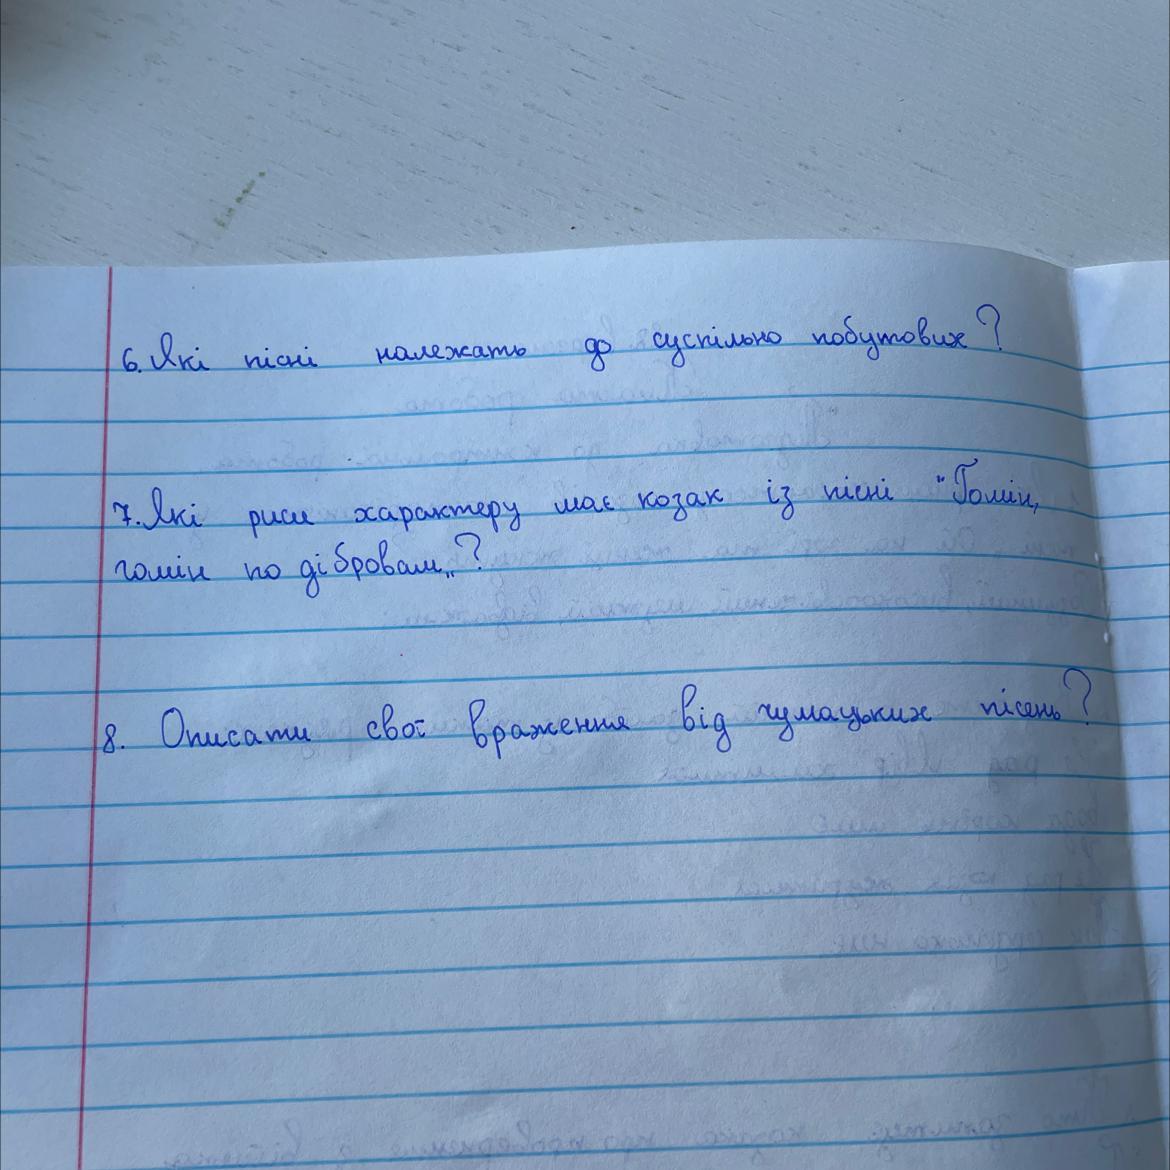 6. Які пісні належать до суспільно побутових?
7. Які риси характеру має козак із пісні "Гомін,
гомін по дібровам„?
8. Описати свої враження від чумацьких пісень?